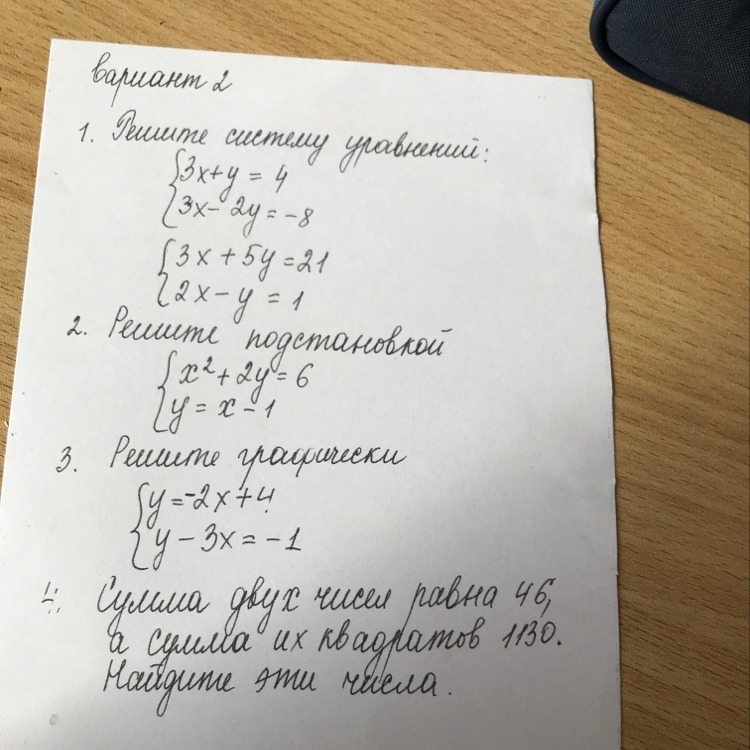 вариант 2
1. Решите систему уравнений:
3x+y = 4
3x-2y = -8
3x+5y=21
2x-y = 1
2. Решите подстановкой
x²+2y=6
y = x-1
3. Решите графически
y=-2x+4
y-3x=-1
4. Сумма двух чисел равна 46,
а сумма их квадратов 1130.
Найдите эти числа.